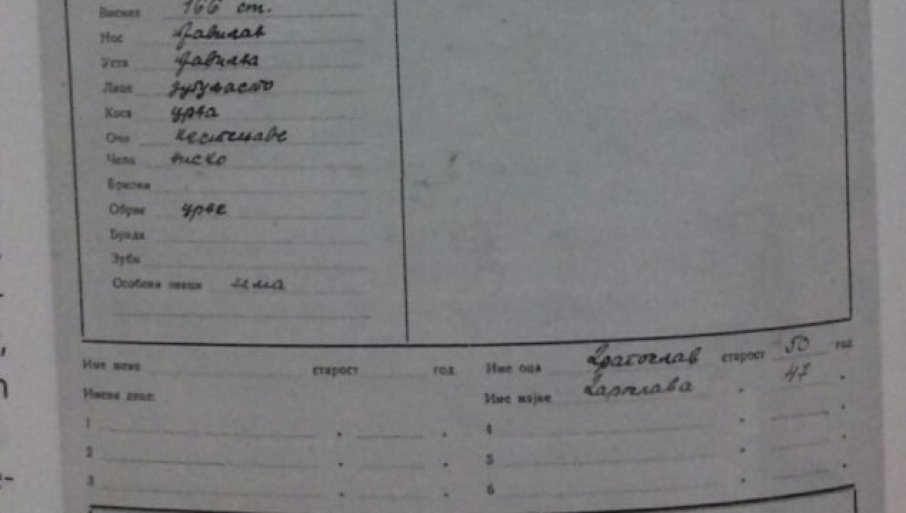 Висина 166 cm.
Нос правилан
Уста правилна
Лице дугуљасто
Коса црна
Очи
Чело ниско
Бркови
Обрве црне
Брада
Зуби
Особени знаци нема
Име жене старост год Име оца Драгослав старост 50 год
Имена деце: Име мајке 47
1 4
2 5
3 6